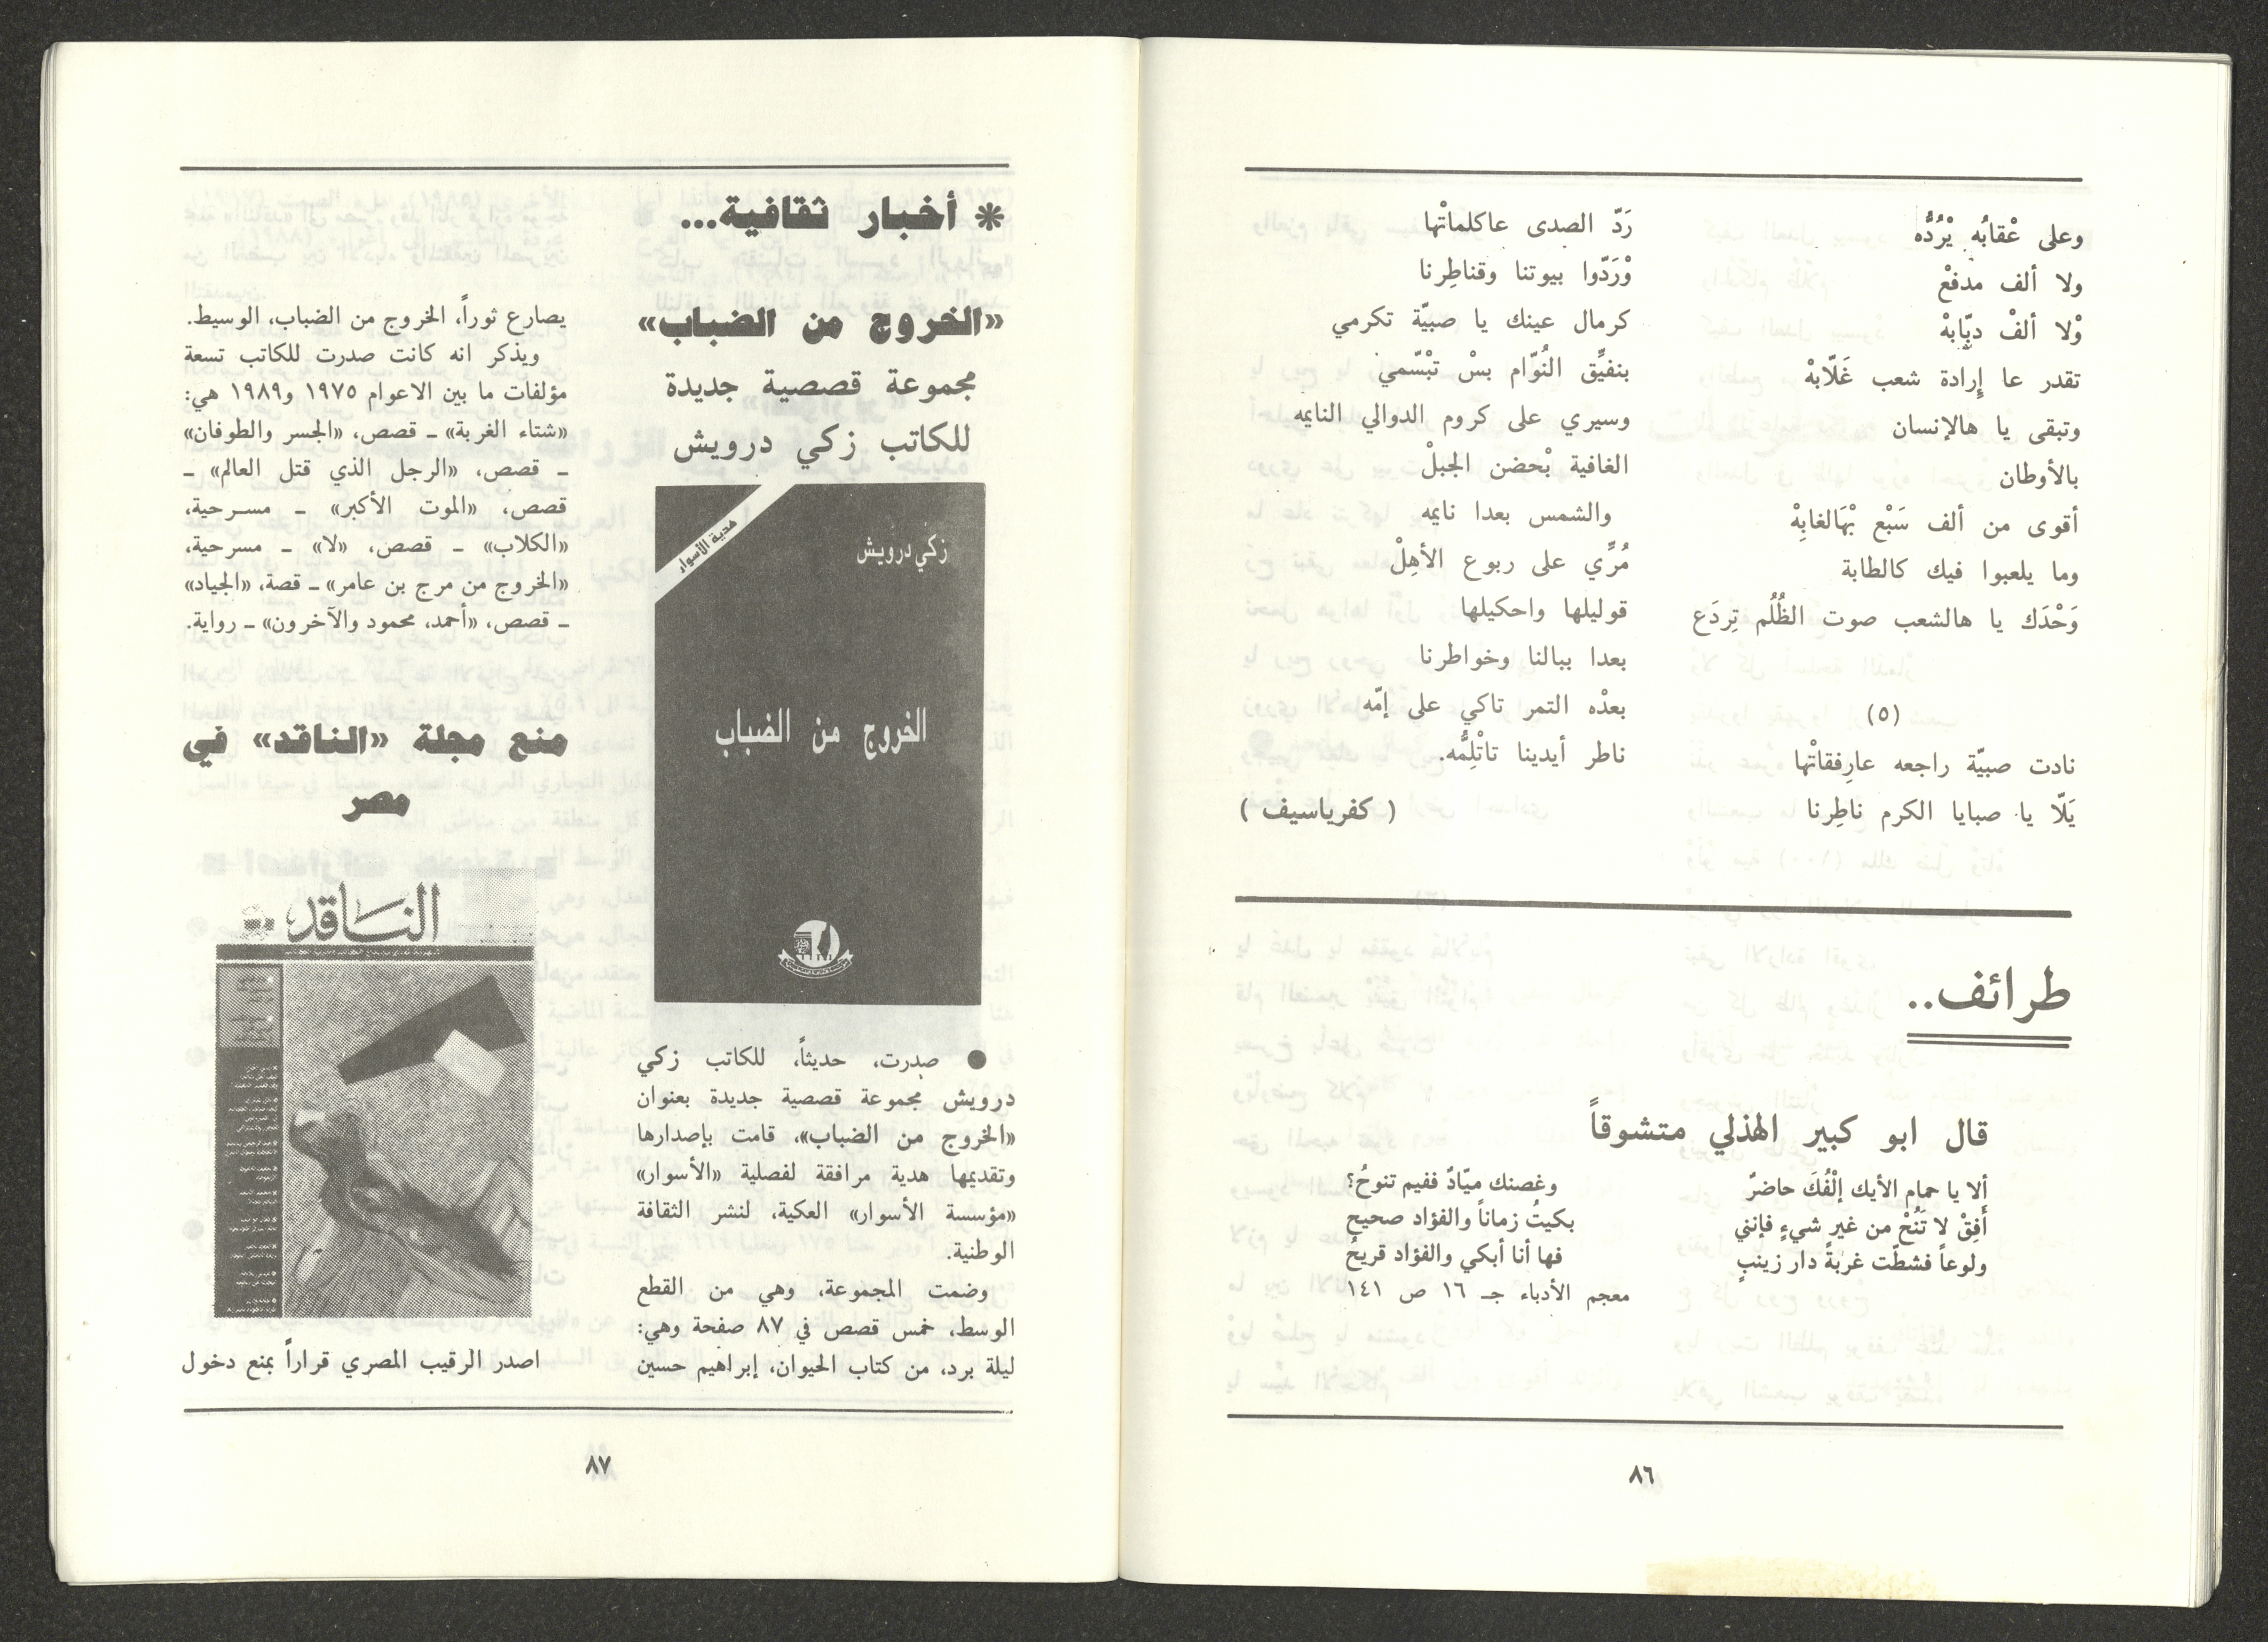 وعلى عْقابُه يْرُدُّه
ولا ألف مدفعْ
وْلا ألفْ دبّابهْ
تقدر عا إِرادة شعب غَلّابهْ
وتبقى يا هالإنسان
بالأوطان
أقوى من ألف سَبْع بْهَالغابِهْ
وما يلعبوا فيك كالطابة
وَحْدَك يا هالشعب صوت الظُلُم تِردَع
(٥)
نادت صبيّة راجعه عارِفقاتْها
يَلّا يا صبايا الكرم ناطِرنا
رَدّ الصدى عاكلماتْها
وْرَدّوا بيوتنا وقناطِرنا
كرمال عينك يا صبيّة تكرمي
بنفيِّق النُوّام بسْ تبْسّمي
وسيري على كروم الدوالي النايمه
الغافية بْحضن الجبلْ
والشمس بعدا نايمه
مُرِّي على ربوع الأهِلْ
قوليلها واحكيلها
بعدا ببالنا وخواطرنا
بعدْه التمر تاكي على إمّه
ناطر أيدينا تاتْلِمُّه.
( كفرياسيف )
طرائف..
قال ابو كبير الهذلي متشوقاً
ألا يا حمام الأيك إلْفُكَ حاضرٌ وغصنك ميّادٌ ففيم تنوحُ؟
أَفِقْ لا تَنُحْ من غير شيءٍ فإنني بكيتُ زماناً والفؤاد صحيح
ولوعاً فشطّت غربةً دار زينبٍ فها أنا أبكي والفؤاد قريحُ
معجم الأدباء جـ ١٦ ص ١٤١
٨٦
* أخبار ثقافية...
«الخروج من الضباب»
مجموعة قصصية جديدة
للكاتب زكي درويش
هدية الأسوار
زكي درويش
الخروج من الضباب
● صدرت، حديثاً، للكاتب زكي
درويش مجموعة قصصية جديدة بعنوان
«الخروج من الضباب»، قامت بإصدارها
وتقديمها هدية مرافقة لفصلية «الأسوار»
«مؤسسة الأسوار» العكية، لنشر الثقافة
الوطنية.
وضمت المجموعة، وهي من القطع
الوسط، خمس قصص في ٨٧ صفحة وهي:
ليلة برد، من كتاب الحيوان، إبراهيم حسين
يصارع ثوراً، الخروج من الضباب، الوسيط.
ويذكر انه كانت صدرت للكاتب تسعة
مؤلفات ما بين الاعوام ١٩٧٥ و١٩٨٩ هي:
«شتاء الغربة» ـ قصص، «الجسر والطوفان»
ـ قصص، «الرجل الذي قتل العالم» ـ
قصص، «الموت الأكبر» ـ مسرحية،
«الكلاب» ـ قصص، «لا» ـ مسرحية،
«الخروج من مرج بن عامر» ـ قصة، «الجياد»
ـ قصص، «أحمد، محمود والآخرون» ـ رواية.
منع مجلة «الناقد» في
مصر
الناقد
اصدر الرقيب المصري قراراً بمنع دخول
٨٧